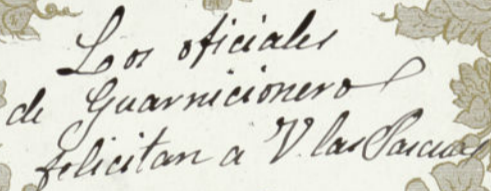 Los oficiales
de Guarnicionero
felicitan a V. las Pascuas